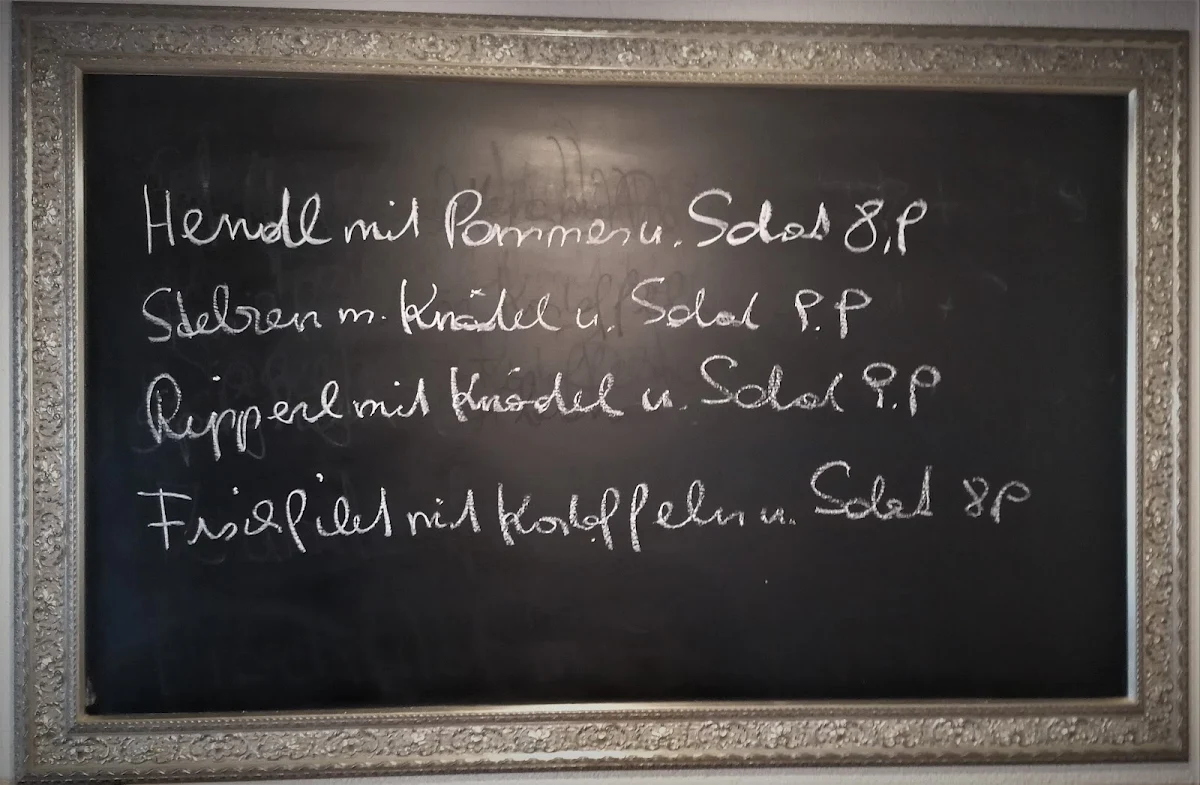 Hendl mit Pommes u. Salat 8,9
Stelzen m. Knödel u. Salat 9.9
Ripperl mit Knödel u. Salat 9.9
Fischfilet mit Kartoffeln u. Salat 89